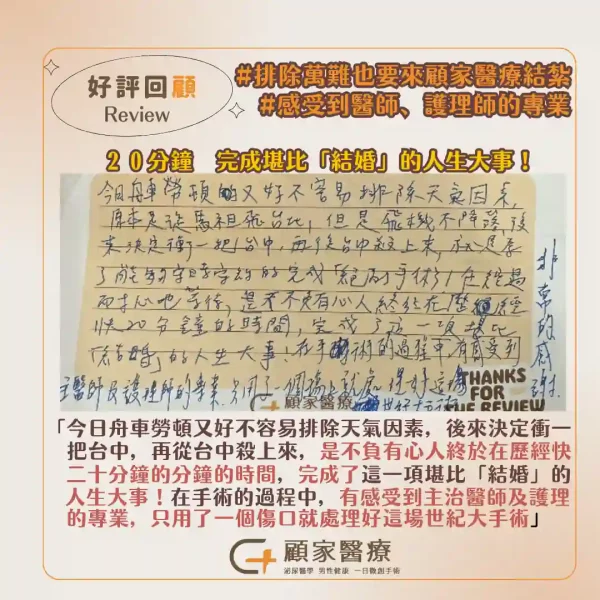 好評回顧
Review
#排除萬難也要來顧家醫療結紮
#感受到醫師、護理師的專業
20分鐘 完成堪比「結婚」的人生大事！
今日舟車勞頓的又好不容易排除天氣因素，
原本是從馬祖飛台北，但是飛機不降落，後
來決定衝一把台中，再從台中殺上來，
20分鐘的時間，完成了這一項堪比
「結婚」的人生大事！在手術的過程中，有感受到
主醫師及護理師的專業，只用了一個傷口就處理好這場
非常的感謝
顧家醫療
THANKS
FOR
THE REVIEW
「今日舟車勞頓又好不容易排除天氣因素，後來決定衝一
把台中，再從台中殺上來，是不負有心人終於在歷經快
二十分鐘的分鐘的時間，完成了這一項堪比「結婚」的
人生大事！在手術的過程中，有感受到主治醫師及護理
的專業，只用了一個傷口就處理好這場世紀大手術」
顧家醫療
泌尿醫學 男性健康 一日微創手術